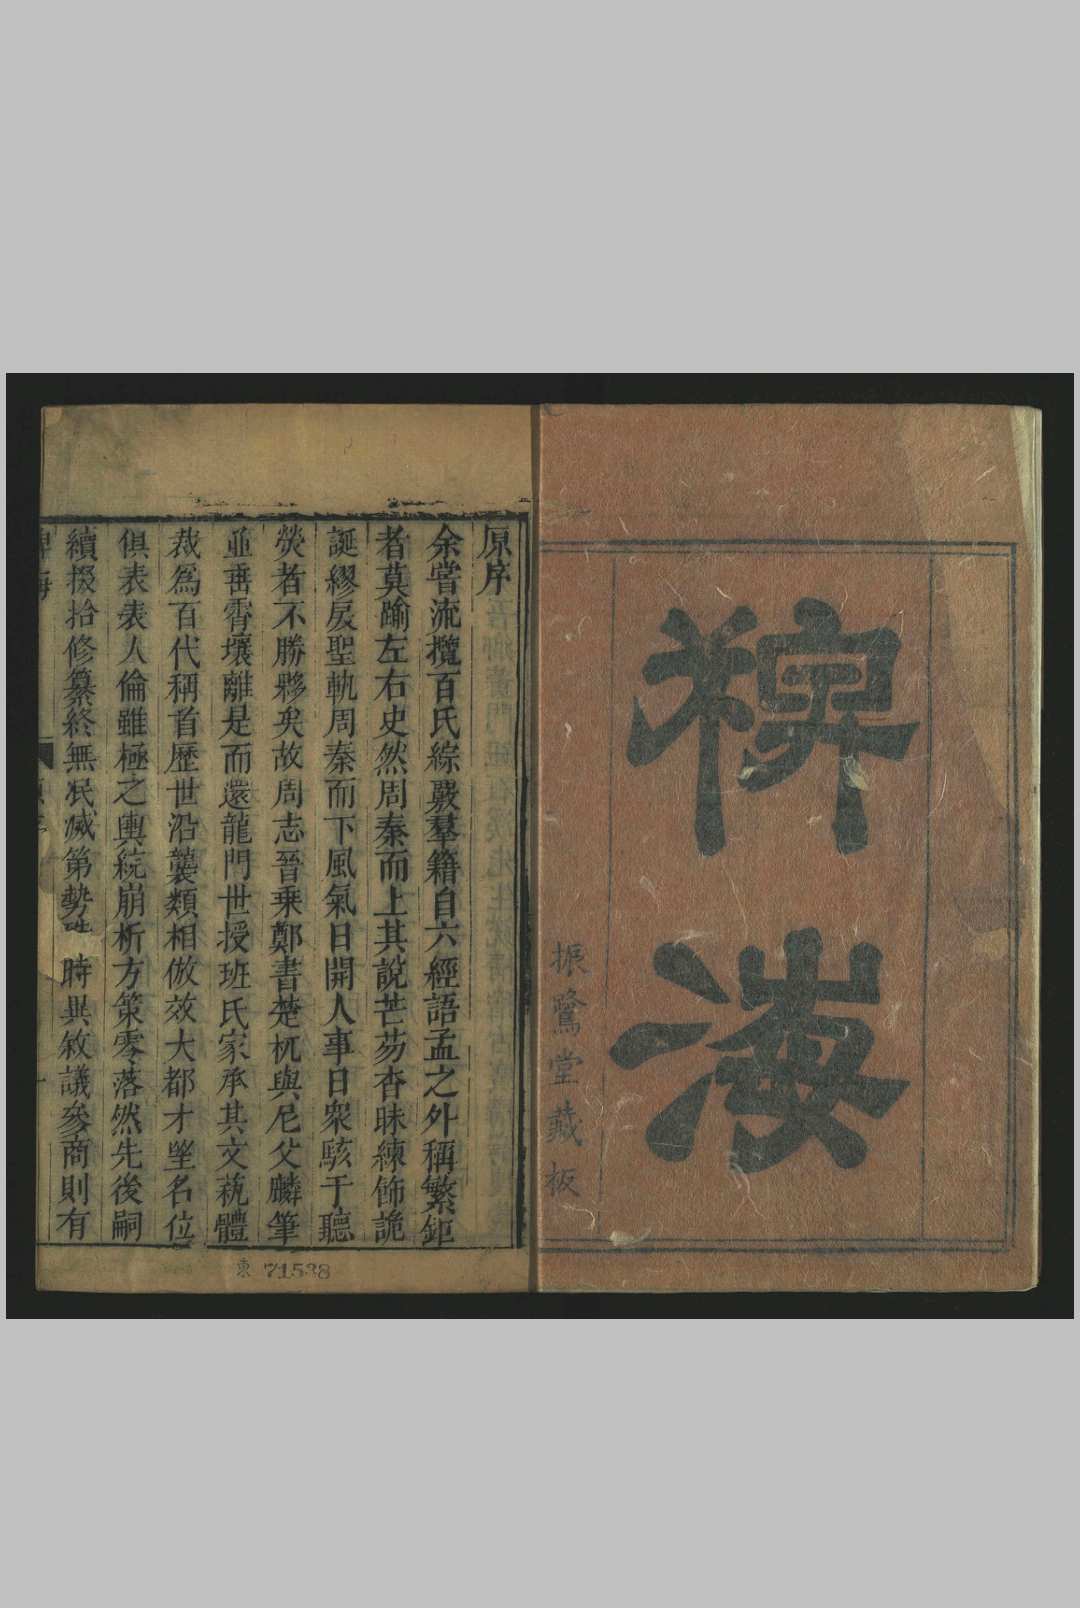 稗海
振鷺堂藏板
原序
余嘗流攬百氏綜覈羣籍自六經語孟之外稱繁鉅
者莫踰左右史然周秦而上其說芒芴杳昧練飾詭
誕繆戾聖軌周秦而下風氣日開人事日衆駭于聽
熒者不勝夥矣故周志晉乗鄭書楚杌與尼父麟筆
並垂霄壤離是而還龍門世授班氏家承其文蓺體
裁爲百代稱首歴世沿襲類相倣效大都才堅名位
俱表表人倫雖極之輿統崩析方策零落然先後嗣
續掇拾修纂終無泯滅第勢 時異敘議參商則有
東 71538